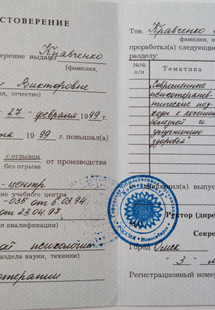 СТОВЕРЕНИЕ
верение выдано Кравченко
(фамилия,
Викторовне
отчество)
27 февраля 1999 г.
1999 г. повышал(а)
с отрывом
без отрыва
от производства
центр
учебного центра
-035 от 6.03.94
от 23.04.97
квалификации)
психологии
раздела науки, техники)
терапии
Тов. Кравченко
(фамилия,
проработал(а) следующие
разделу:
№№
п/п
Тематика
Современные
психотерапев-
тические под-
ходы к лечению
болезней и
улучшению
здоровья"
выпуск
Ректор (дире
Секре
Город Омск
3-
Регистрационный номер